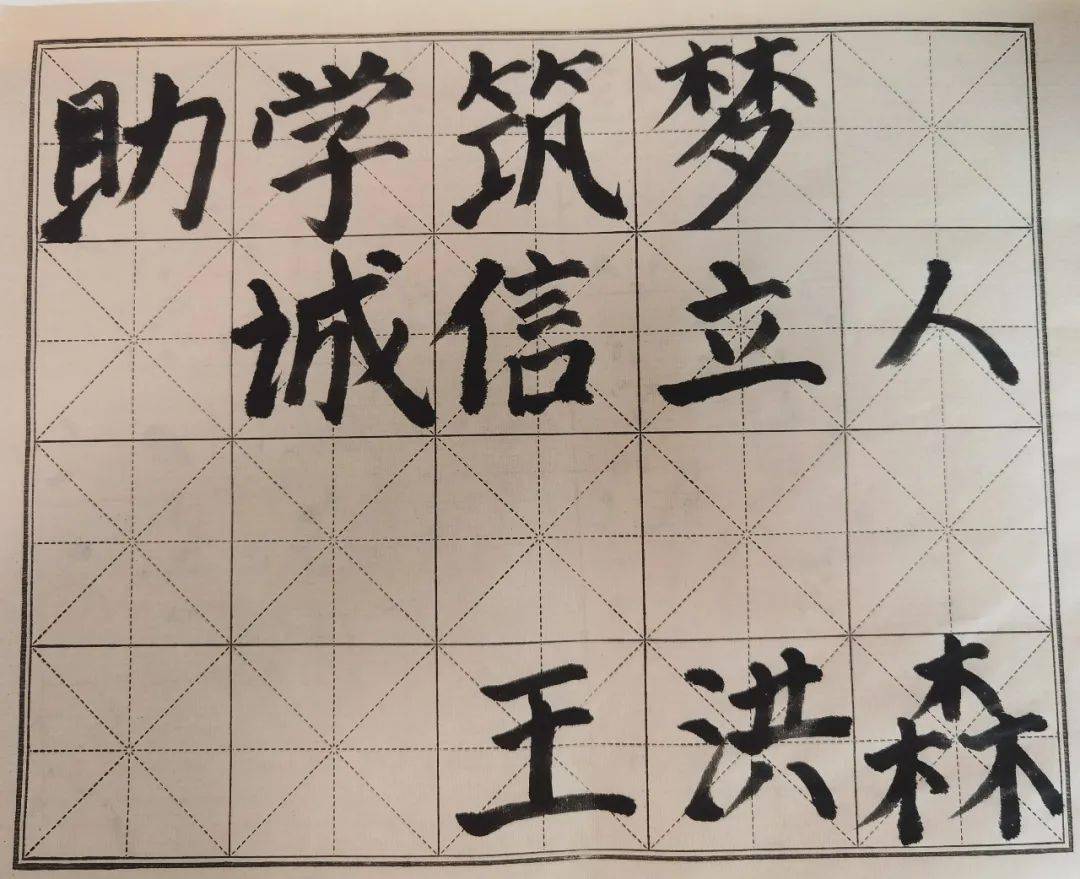 助学筑梦
诚信立人
王洪森